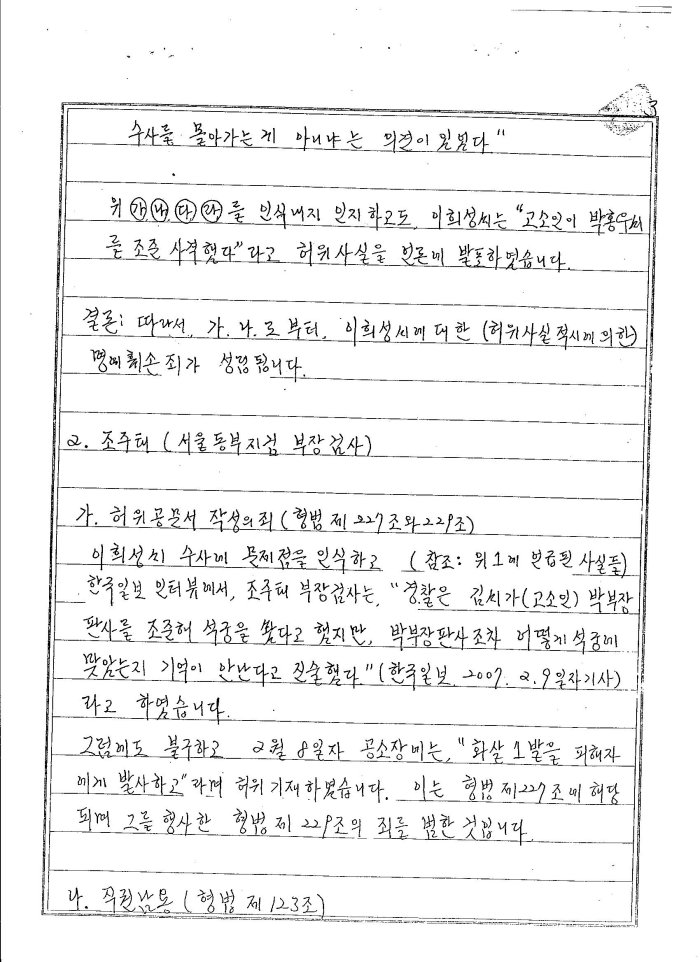 3
수사를 몰아가는게 아니냐는 의견이 있었다"
위 ㉮㉯㉰㉱를 인식내지 인지하고도, 이희성씨는 "고소인이 박홍우씨
를 조준 사격했다"라고 허위사실을 언론에 발표하였습니다.
결론: 따라서, 가. 나. 로부터, 이희성씨에 대한 (허위사실적시에 의한)
명예훼손죄가 성립됩니다.
2. 조주태 (서울동부지검 부장검사)
가. 허위공문서 작성의죄 (형법 제227조와 229조)
이희성씨 수사에 문제점을 인식하고 (참조: 위 1에 언급된 사실들)
한국일보 인터뷰에서, 조주태 부장검사는, "경찰은 김씨가(고소인) 박부장
판사를 조준혀 석궁을 쐈다고 했지만, 박부장판사조차 어떻게 석궁에
맞았는지 기억이 안난다고 진술했다"(한국일보 2007. 2. 9일자기사)
라고 하였습니다.
그럼에도 불구하고 2월 8일자 공소장에는, "화살 1발을 피해자
에게 발사하고"라며 허위기재하였습니다. 이는 형법 제227조에 해당
되며 그를 행사한 형법 제 229조의 죄를 범한 것입니다.
나. 직권남용 (형법 제123조)